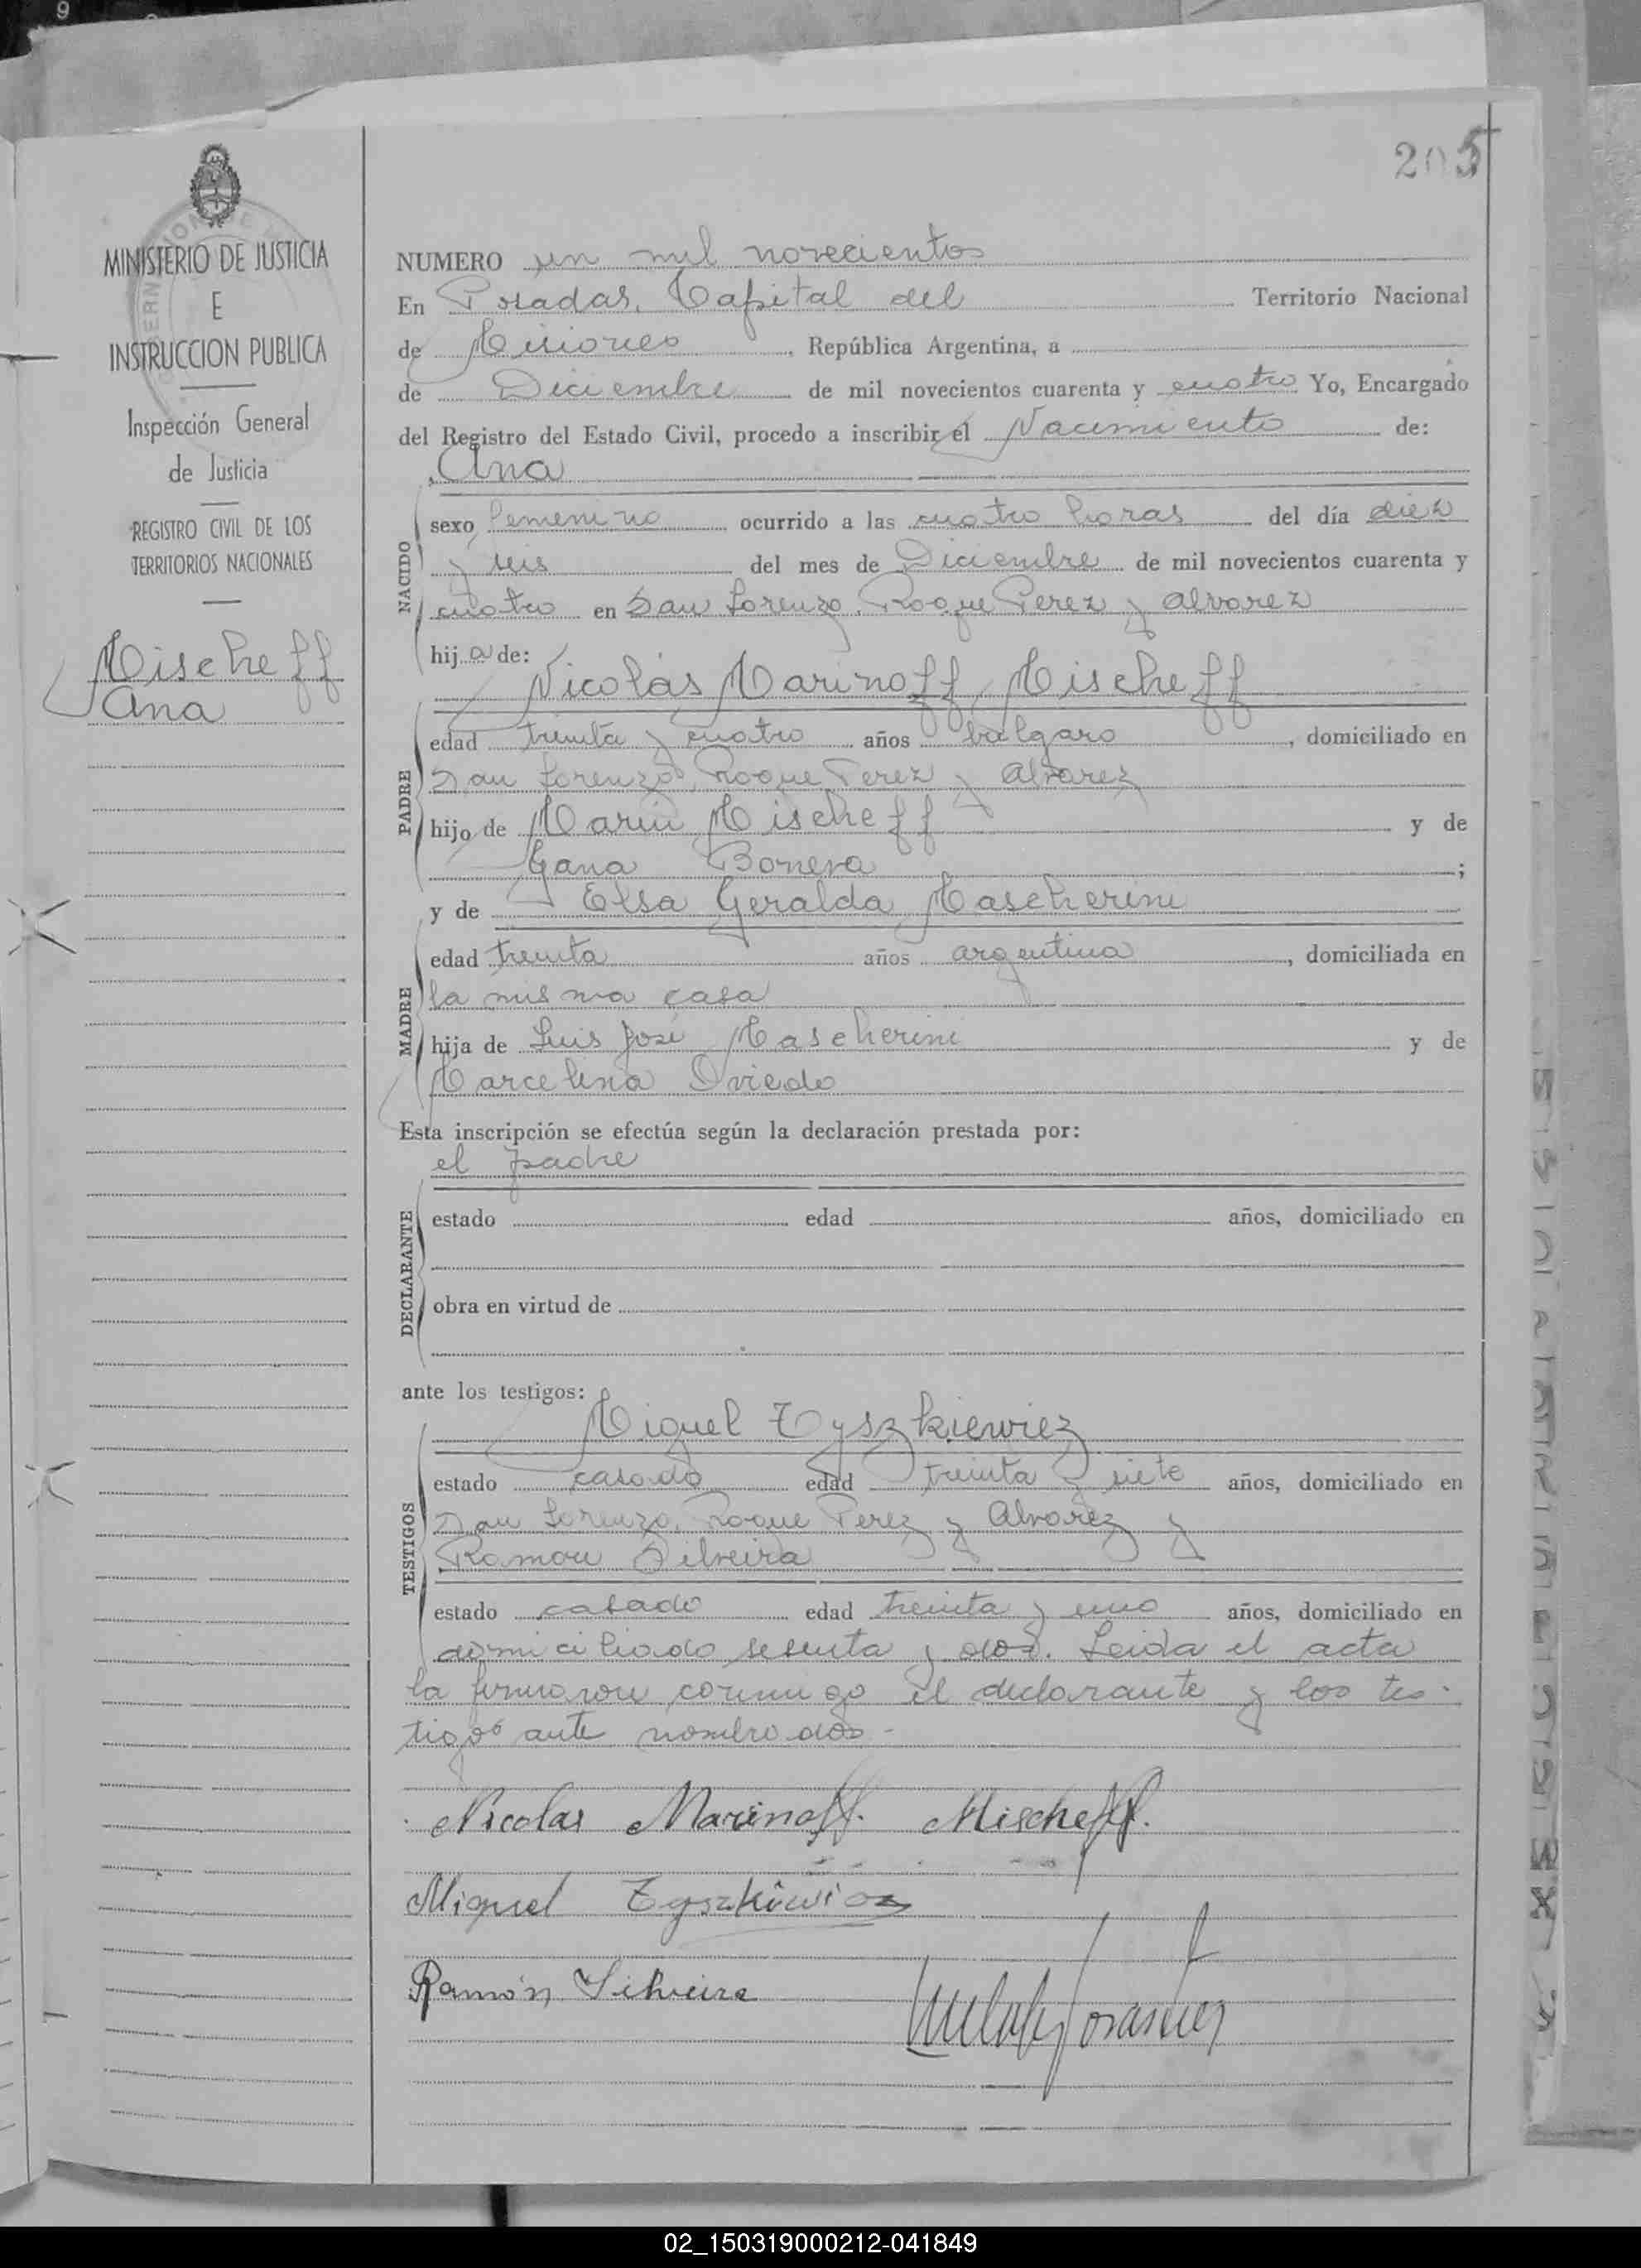 205
MINISTERIO DE JUSTICIA
E
INSTRUCCION PUBLICA
Inspección General
de Justicia
REGISTRO CIVIL DE LOS
TERRITORIOS NACIONALES
Mischeff
Ana
NUMERO un mil novecientos
En Posadas, Capital del Territorio Nacional
de Misiones, República Argentina, a
de Diciembre de mil novecientos cuarenta y cuatro Yo, Encargado
del Registro del Estado Civil, procedo a inscribir el Nacimiento de:
Ana
NACIDO
sexo femenino ocurrido a las cuatro horas del día diez
y seis del mes de Diciembre de mil novecientos cuarenta y
cuatro en San Lorenzo, Roque Perez y Alvarez
hija de:
Nicolás Marinoff Mischeff
PADRE
edad treinta y cuatro años búlgaro, domiciliado en
San Lorenzo, Roque Perez y Alvarez
hijo de Marin Mischeff y de
Gana Boneva;
y de Elsa Geralda Mascherini
MADRE
edad treinta años argentina, domiciliada en
la misma casa
hija de Luis José Mascherini y de
Marcelina Oviedo
Esta inscripción se efectúa según la declaración prestada por:
el padre
DECLARANTE
estado edad años, domiciliado en
obra en virtud de
ante los testigos:
Miguel Tyszkiewiez
TESTIGOS
estado casado edad treinta y siete años, domiciliado en
San Lorenzo, Roque Perez y Alvarez y
Ramon Silveira
estado casado edad treinta y uno años, domiciliado en
domiciliado sesenta y dos. Leida el acta
la firmaron conmigo el declarante y los tes-
tigos ante nombrados-
Nicolas Marinoff. Mischeff.
Miguel Tyszkiewicz
Ramón Silveira
02_150319000212-041849